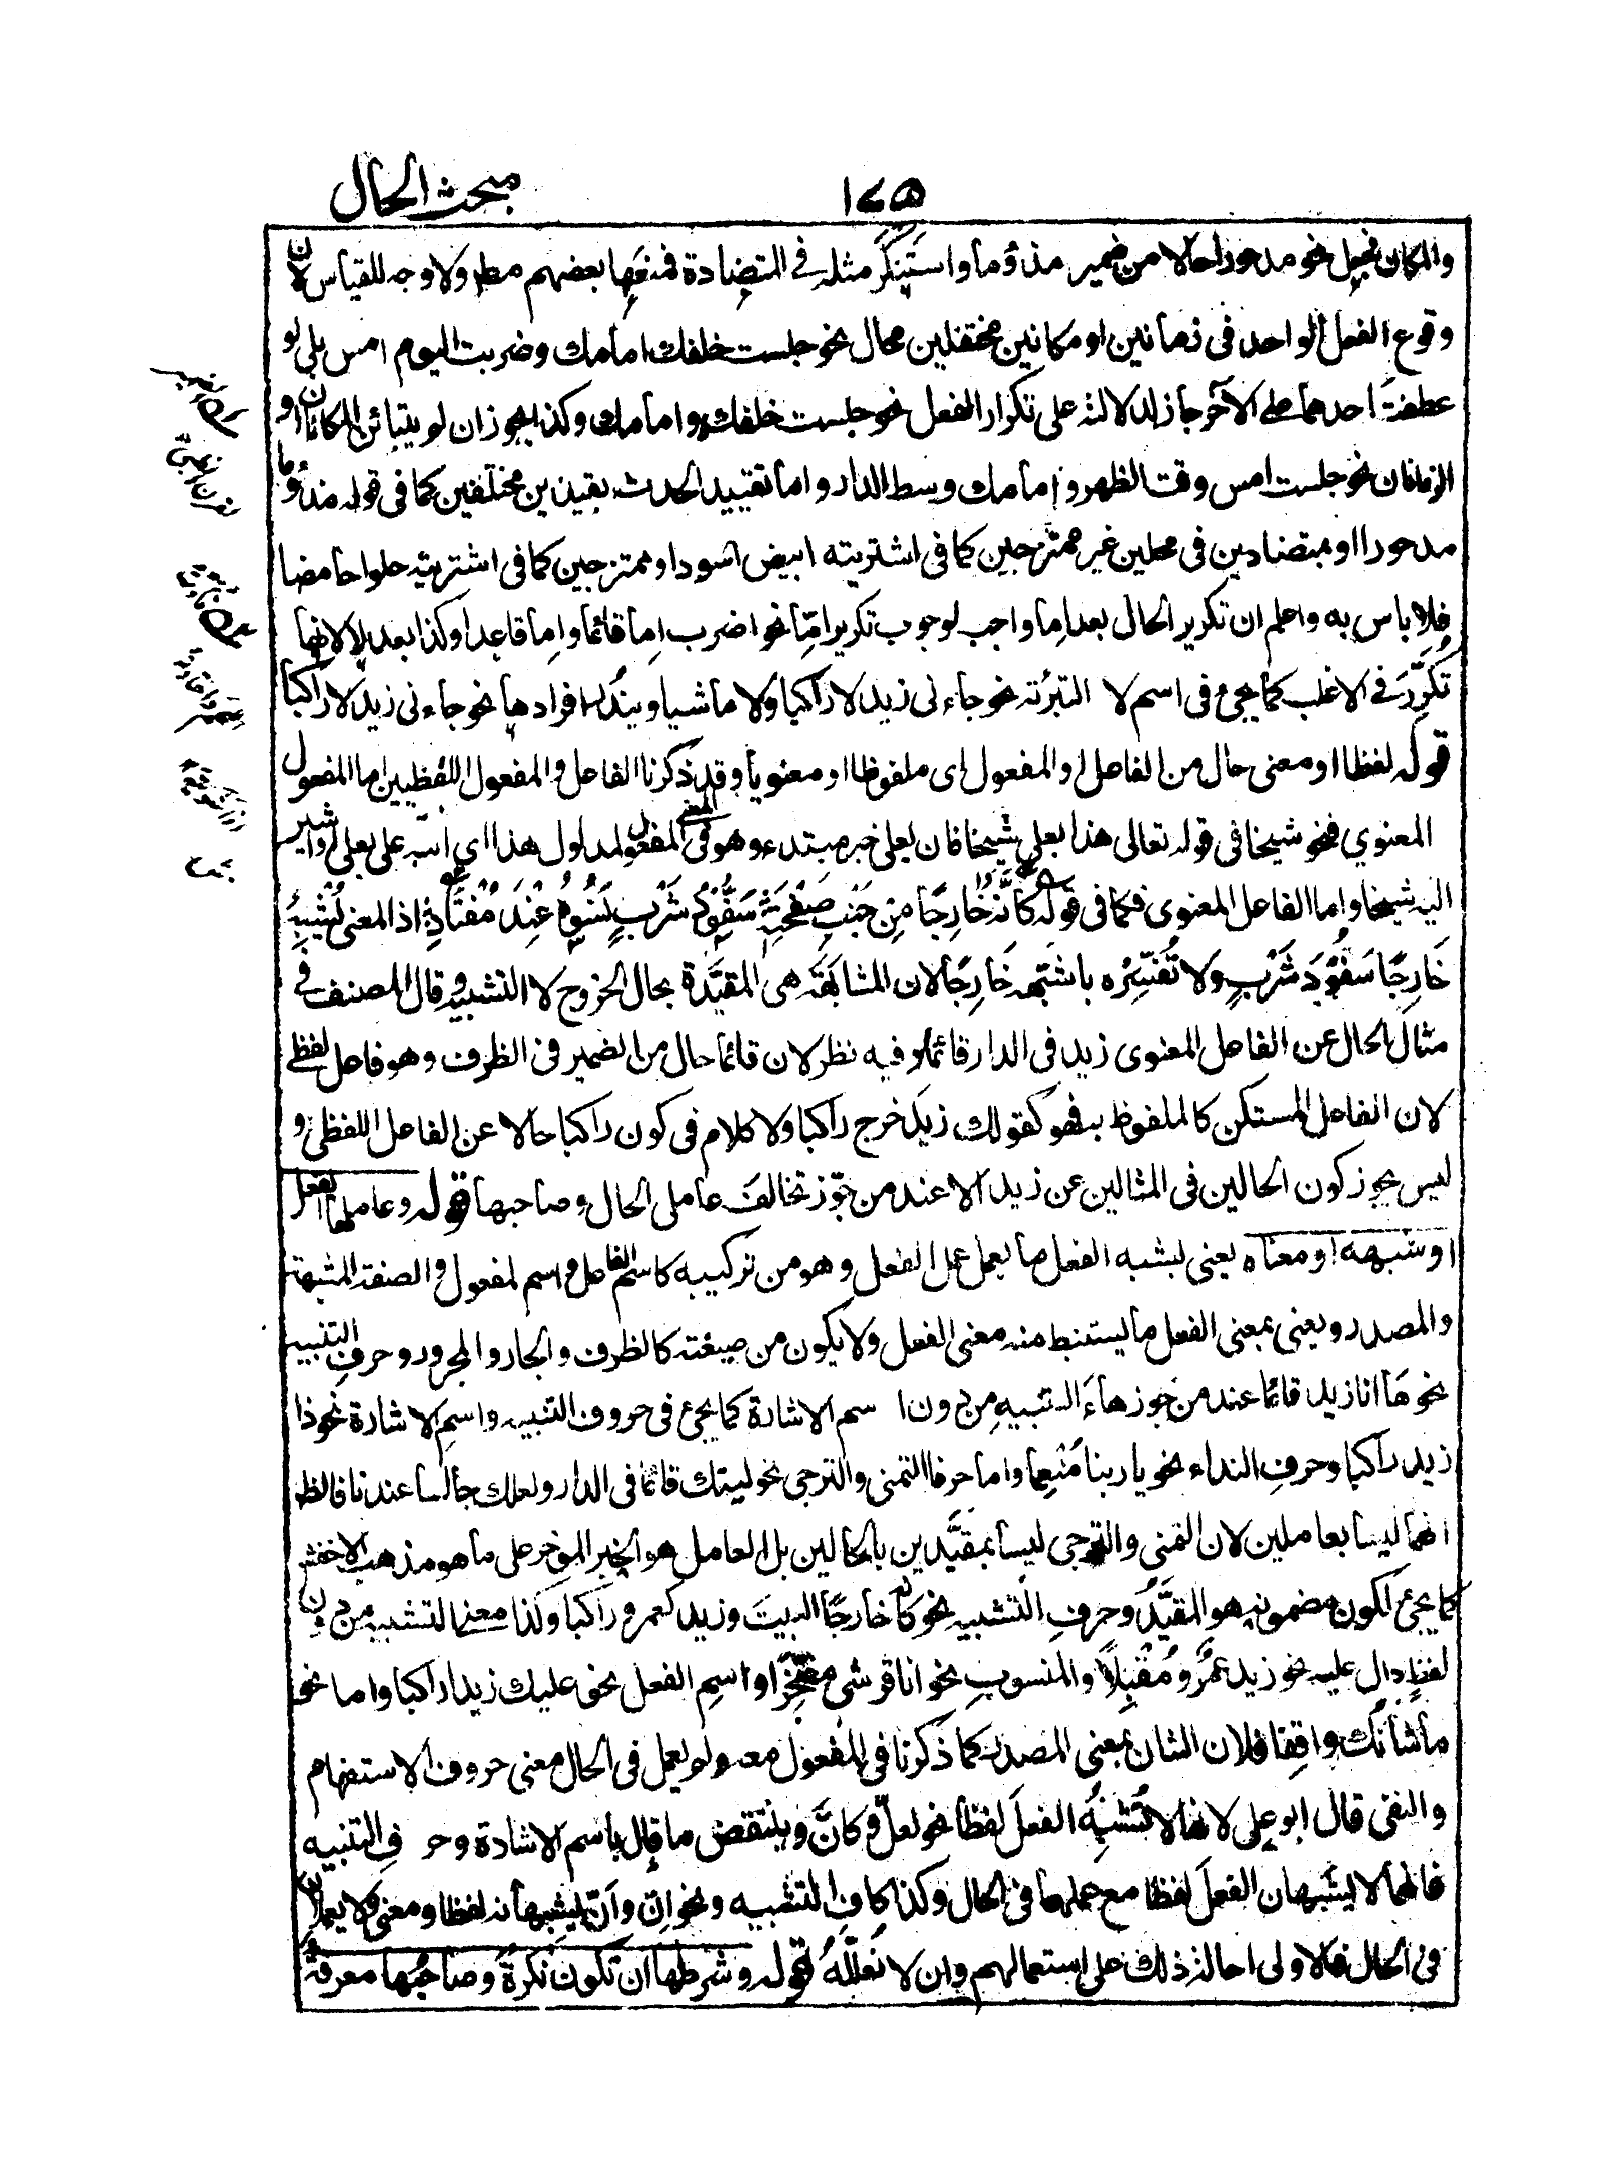 مبحث الحال
١٧٥
والمكان فجعل نحو مدحورا حالا من ضمير مذؤما واستنكر مثله في المتضادة فمنعها بعضهم مطر ولا وجه للقياس لان
وقوع الفعل الواحد فى زمانين او مكانين مختلفين محال نحو جلست خلفك امامك وضربت اليوم امس بلى لو
عطفت احدهما على الآخر جاز لدلالته على تكرار الفعل نحو جلست خلفك وامامك وكذا يجوز ان لو يتباين المكانان او
الزمانان نحو جلست امس وقت الظهر و امامك وسط الدار واما تقييد الحدث بقيدين مختلفين كما فى قوله مذؤما
مدحورا او بمتضادين فى محلين غير ممتزجين كما فى اشتريته ابيض اسود او ممتزجين كما فى اشتريته حلوا حامضا
فلا باس به واعلم ان تكرير الحال بعد اما واجب لوجوب تكرير امّا نحو اضرب اما قائما واما قاعدا وكذا بعد لا لانها
تكرّر فى الاغلب كما يجئ فى اسم لا التبرئة نحو جاءنى زيد لا راكبا ولا ماشيا ويندر افرادها نحو جاءنى زيد لا راكبا
قوله لفظا او معنى حال من الفاعل او المفعول اى ملفوظا او معنويا وقد ذكرنا الفاعل والمفعول اللفظيين اما المفعول
المعنوي فنحو شيخا فى قوله تعالى هذا بعلي شيخا فان بعلى خبر مبتدء وهو فى المعنى المفعول لمدلول هذا اي انبه على بعلى واشير
اليه شيخا واما الفاعل المعنوى فكما فى قوله كَأَنَّهُ خَارِجًا مِنْ جَنْبِ صَفْحَتِهِ سَفُّودُ شَرْبٍ نَسُوهُ عِنْدَ مُفْتَأَدِ اذ المعنى يُشْبِهُ
خَارِجًا سَفُّودَ شَرْبٍ ولا تُفَسِّرْه باشبّهه خَارِجًا لان المشابهة هى المقيَّدة بحال الخروج لا التشبيه وقال المصنف فى
مثال الحال عن الفاعل المعنوى زيد فى الدار قائما وفيه نظر لان قائما حال من الضمير فى الظرف وهو فاعل لفظى
لان الفاعل المستكن كالملفوظ به فهو كقولك زيد خرج راكبا ولا كلام فى كون راكبا حالا عن الفاعل اللفظى و
ليس يجوز كون الحالين فى المثالين عن زيد الا عند من جوّز تخالف عاملى الحال وصاحبها قوله وعاملها الفعل
او شبهه او معناه يعنى بشبه الفعل ما يعمل عمل الفعل وهو من تركيبه كاسم الفاعل واسم لمفعول والصفة المشبهة
والمصدر ويعنى بمعنى الفعل ما يستنبط منه معنى الفعل ولا يكون من صيغته كالظرف والجار والمجرور وحرف التنبيه
نحو ها انا زيد قائما عند من جوز هاء التنبيه من دون ا سم الاشارة كما يجئ فى حروف التنبيه واسم الاشارة نحو ذا
زيد راكبا وحرف النداء نحو يا ربنا مُنْعِما واما حرفا التمنى والترجى نحو ليتك قائما فى الدار ولعلك جالسا عندنا فالظ
انهما ليسا بعاملين لان التمنى والترجى ليسا بمقيَّدين بالحالين بل العامل هو الخبر المؤخر على ما هو مذهب الاخفش
كما يجئ لكون مضمونه هو المقيَّدُ وحرف التشبيه نحو كانه خارجًا البيت وزيد كعمرو راكبا وكذا معنى التشبيه من دون
لفظ دال عليه نحو زيد عمرٌو مُقْبِلاً والمنسوب نحو انا قرشى مفتخرًا او اسم الفعل نحو عليك زيدا راكبا واما نحو
ما شانك واقفا فلان الشان بمعنى المصدر كما ذكرنا فى المفعول معه ولم يعمل فى الحال معنى حروف الاستفهام
والنفى قال ابو على لانها لا تُشْبِهُ الفعلَ لفظا نحو لعلّ وكانّ وينتقض ما قال باسم الاشارة وحر فى التنبيه
فانهما لا يشبهان الفعلَ لفظا مع عملهما فى الحال وكذا كاف التشبيه ونحو انّ وأنّ يشبهانه لفظا ومعنى ولا يعملان
فى الحال فالاولى احالة ذلك على استعمالهم وان لا نُعلّلَه قوله وشرطها ان تكون نكرةً وصاحبُها معرفةً